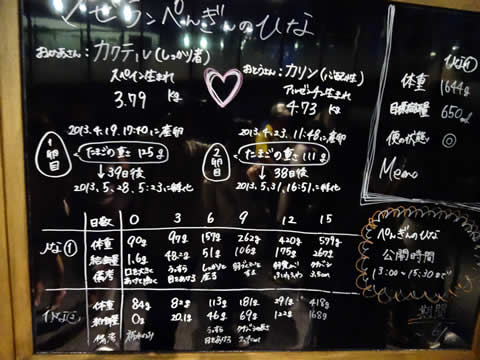 マゼランぺんぎんのひな
おかあさん：カクテル(しっかり者)
スペイン生まれ
3.79 Kg
おとうさん：カリン(心配性)
アルゼンチン生まれ
4.73 Kg
2013.4.19.19:40に産卵
1卵目
たまごの重さ 125g
→39日後
2013.5.28.5:23に孵化
2013.4.23.11:48に産卵
2卵目
たまごの重さ 111g
→38日後
2013.5.31.16:51.に孵化
日数 0 3 6 9 12 15
ひな①
体重 90g 97g 159g 262g 420g 579g
給餌量 1.6g 48.2g 51g 106g 175g 267g
備考
ひな②
体重 84g 82g 113g 181g 291g 418g
給餌量 0g 20.1g 46g 69g 122g 168g
備考
ひな①
体重 1644g
目標給餌量 650ml
便の状態 ◎
Memo
ぺんぎんのひな
公開時間
13:00～15:30まで
期間